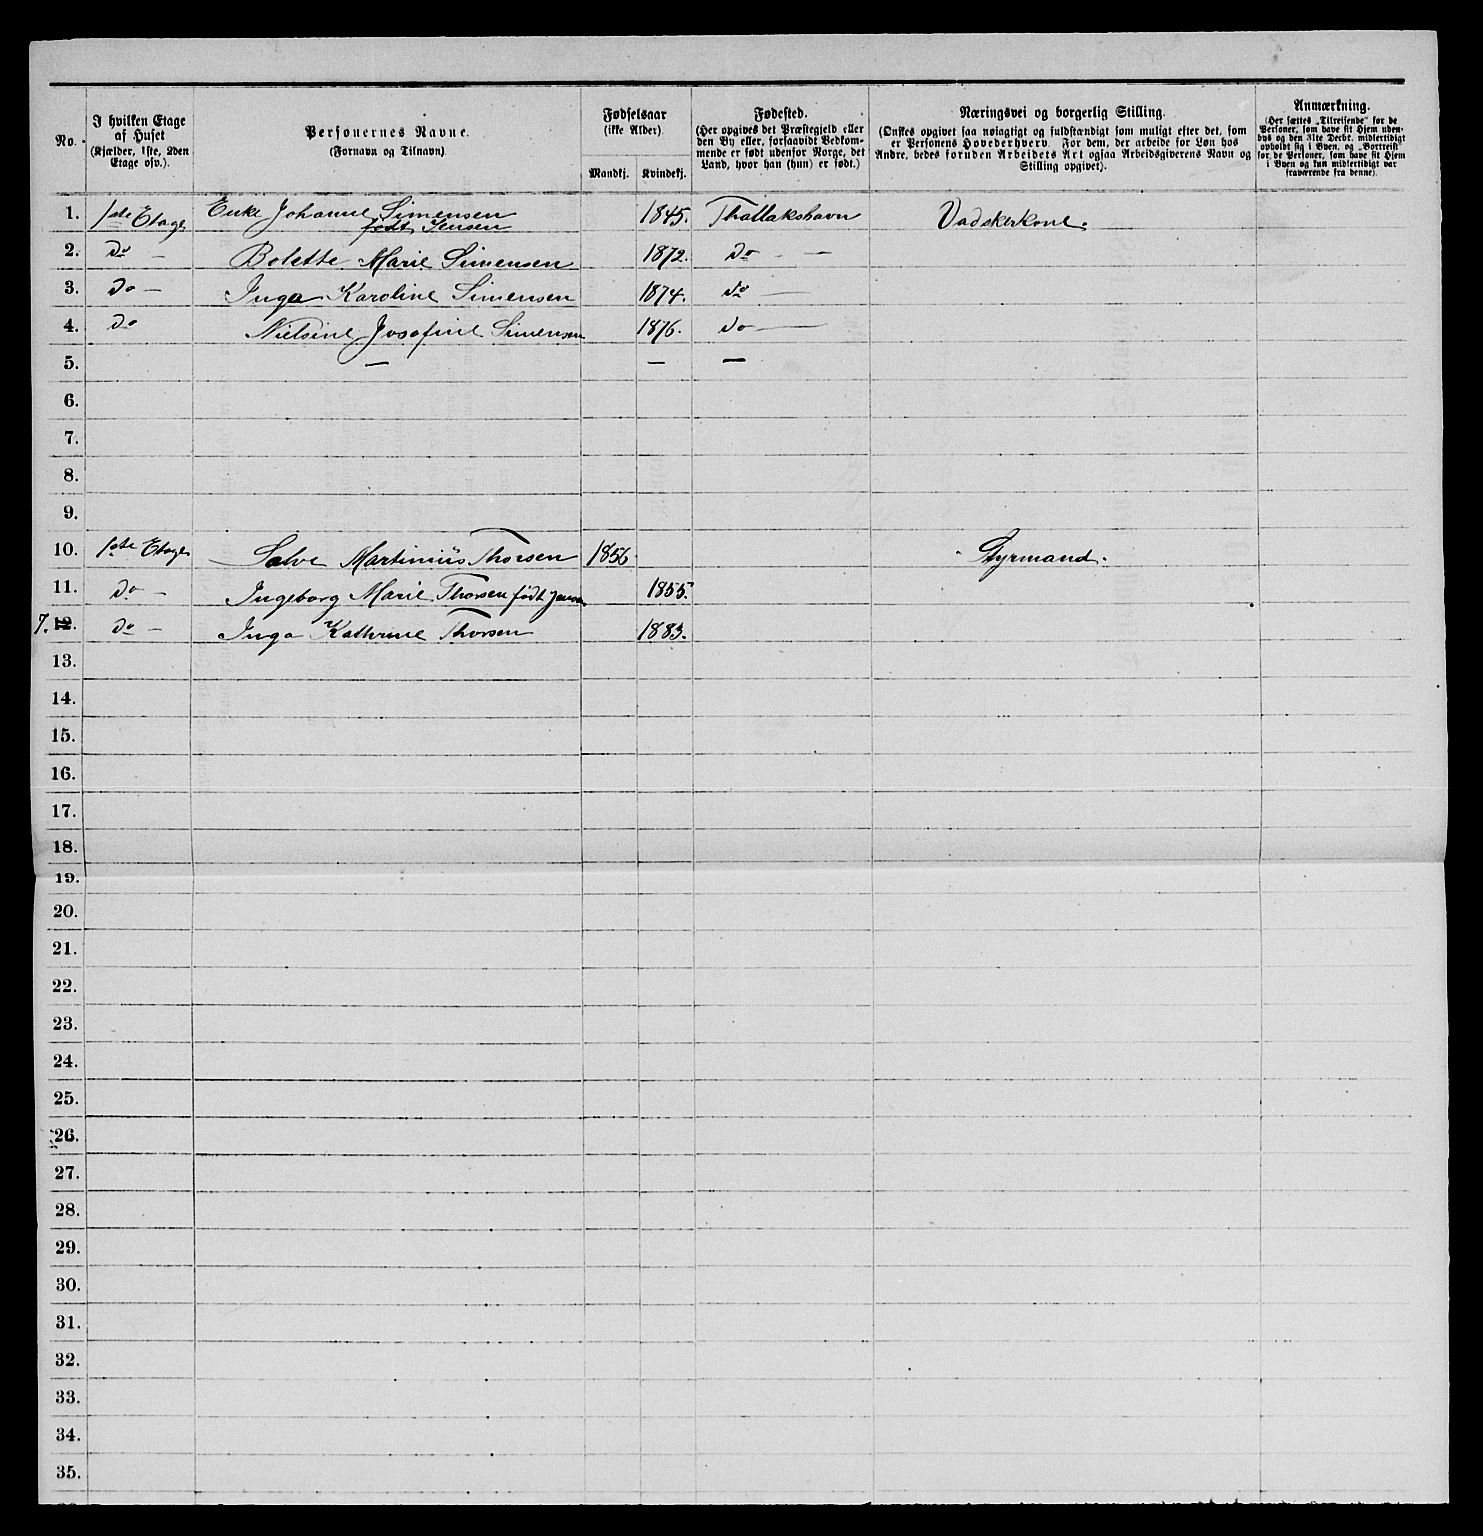 No.
I hvilken Etage
af Huset
(Kjælder, 1ste, 2den
Etage osv.).
Personernes Navne.
(Fornavn og Tilnavn).
Fødselsaar
(ikke Alder).
Mandkj. Kvindekj.
Fødested.
(Her opgives det Præstegjeld eller
den By eller, forsaavidt Vedkom-
mende er født udenfor Norge, det
Land, hvor han (hun) er født.)
Næringsvei og borgerlig Stilling.
(Ønskes opgivet saa nøiagtigt og fuldstændigt som muligt efter det, som
er Personens Hovederhverv. For dem, der arbeide for Løn hos
Andre, bedes foruden Arbeidets Art ogsaa Arbeidsgiverens Navn og
Stilling opgivet).
Anmærkning.
(Her sættes „Tilreisende“ for de
Personer, som have sit Hjem uden-
bys og den 31te Decbr. midlertidigt
opholdt sig i Byen, og „Bortreist“
for de Personer, som have sit Hjem
i Byen og kun midlertidigt var
fraværende fra denne).
1. 1ste Etage Enke Johanne Simensen 1845. Thallakshavn Vadskerkone.
født Jensen
2. Do — Bolette Marie Simensen 1872. Do — —
3. Do — Inga Karoline Simensen 1874. Do —
4. Do Nielsine Josefine Simensen 1876. Do —
5. — — —
6.
7.
8.
9.
10. 1ste Etage Salve Martinius Thorsen 1856 Styrmand.
11. Do — Ingeborg Marie Thorsen født Jensen 1855.
7. 12. Do — Inga Kathrine Thorsen 1883.
13.
14.
15.
16.
17.
18.
19.
20.
21.
22.
23.
24.
25.
26.
27.
28.
29.
30.
31.
32.
33.
34.
35.